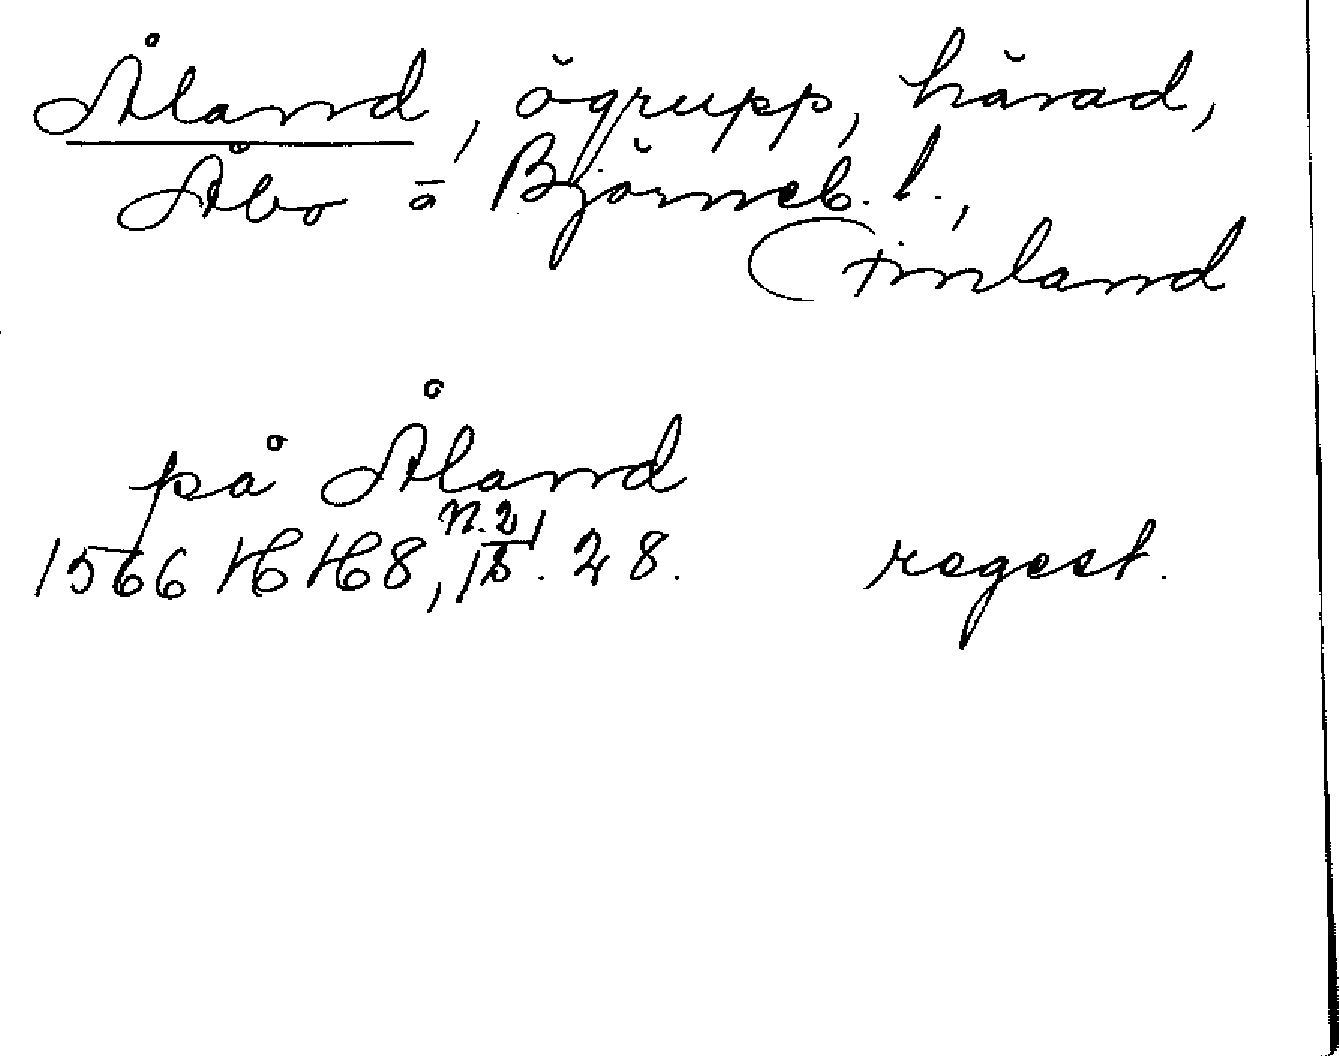 Åland, ögrupp, härad,
Åbo o Björneb. l.,
Finland
på Åland
1566 HH 8, n. 2, 28.
regest.